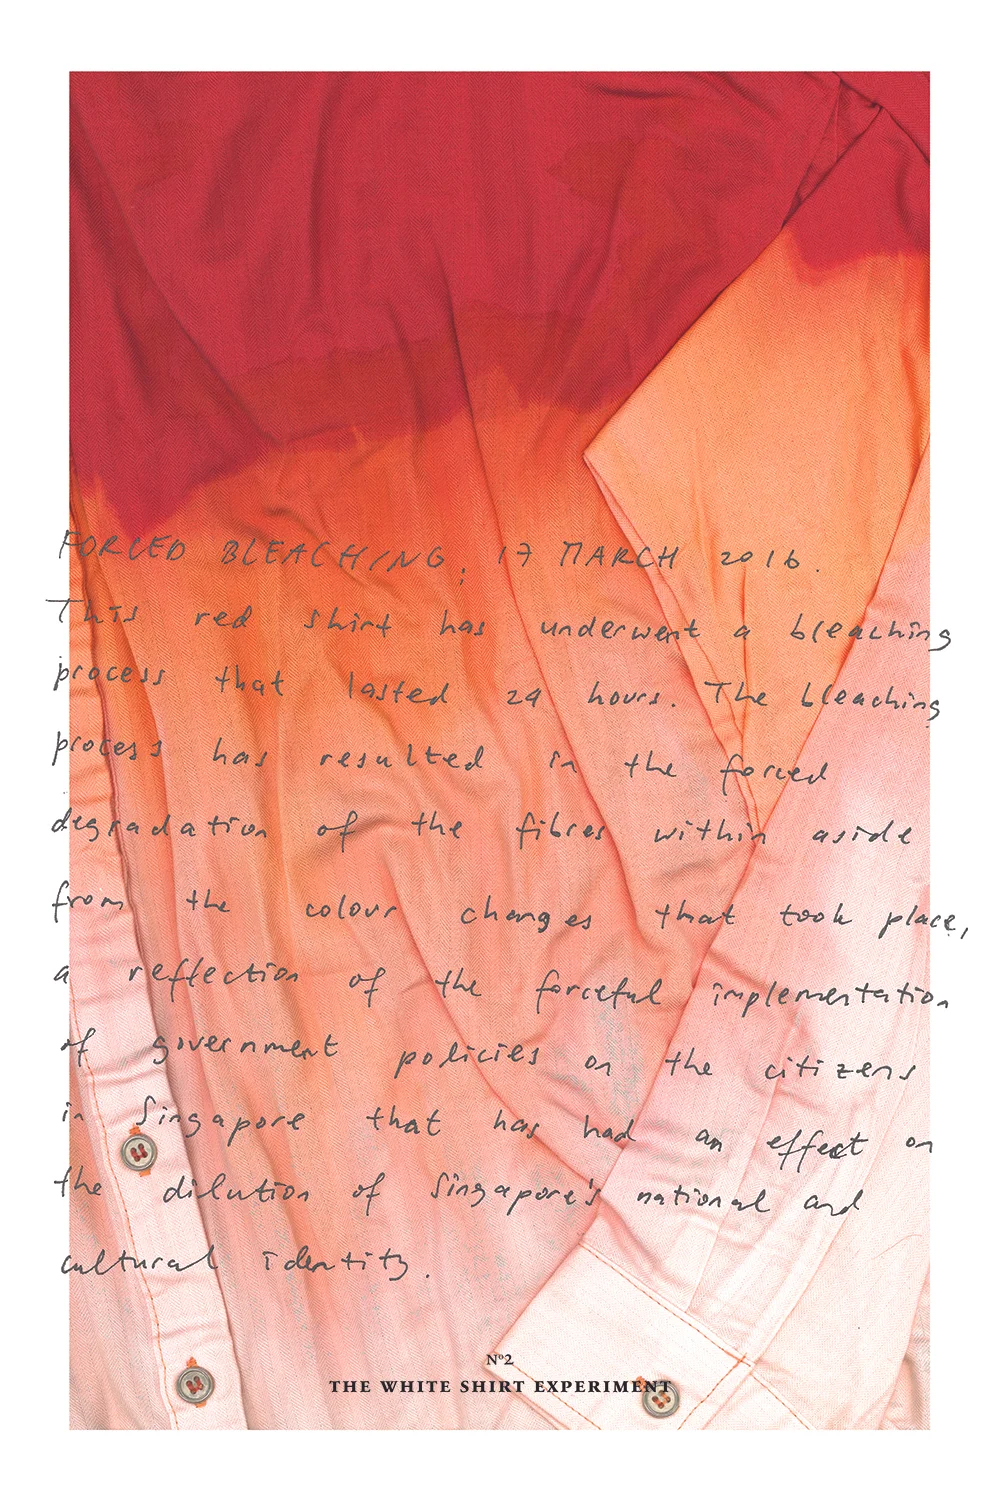 FORCED BLEACHING; 17 MARCH 2016.
This red shirt has underwent a bleaching
process that lasted 29 hours. The bleaching
process has resulted in the forced
degradation of the fibres within aside
from the colour changes that took place,
a reflection of the forceful implementation
of government policies on the citizens
in Singapore that has had an effect on
the dilution of Singapore's national and
cultural identity.
Nº2
THE WHITE SHIRT EXPERIMENT